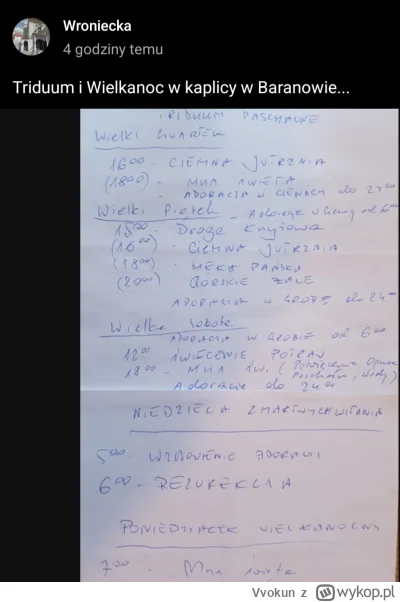 Wroniecka
4 godziny temu
Triduum i Wielkanoc w kaplicy w Baranowie...
TRIDUUM PASCHALNE
Wielki Czwartek
16⁰⁰ - CIEMNA JUTRZNIA
(18⁰⁰) - MSZA ŚWIĘTA
- ADORACJA w CIEMNICY do 24⁰⁰
Wielki Piątek - Adoracja w Ciemnicy od 6⁰⁰
15⁰⁰ - Droga Krzyżowa
(16⁰⁰) - CIEMNA JUTRZNIA
(18⁰⁰) - MĘKA PAŃSKA
(20⁰⁰) GORZKIE ŻALE
ADORACJA w GROBIE do 24⁰⁰
Wielka Sobota
ADORACJA W GROBIE od 6⁰⁰
12⁰⁰ ŚWIĘCENIE POTRAW
18⁰⁰ - MSZA ŚW. (Poświęcenie Ognia
Paschału, Wody)
Adoracja do 24⁰⁰
NIEDZIELA ZMARTWYCHWSTANIA
5⁰⁰ - WZNOWIENIE ADORACJI
6⁰⁰ - REZUREKCJA
PONIEDZIAŁEK WIELKANOCNY
7⁰⁰ - Msza święta
Vvokun z wykop.pl